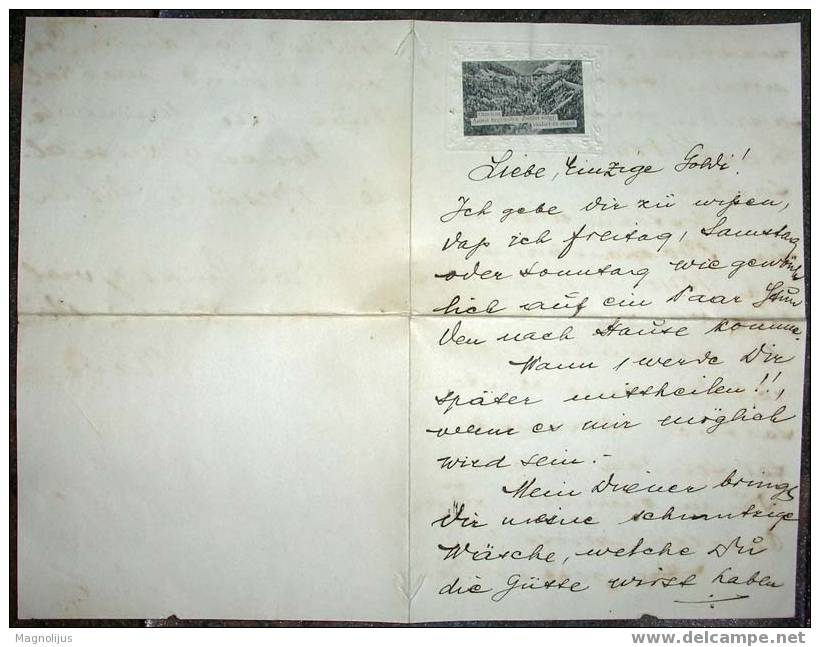 Liebe, Einzige Goldi!
Ich gebe dir zu wissen,
daß ich Freitag, Samstag
oder Sonntag wie gewöhn
lich auf ein Paar Stun
den nach Hause komme.
Wann, werde Dir
später mittheilen!!,
wenn es mir möglich
wird sein.-
Mein Diener bringt
dir meine schmutzige
Wäsche, welche Du
die Gütte wirst haben
Magnolijus
www.delcampe.net